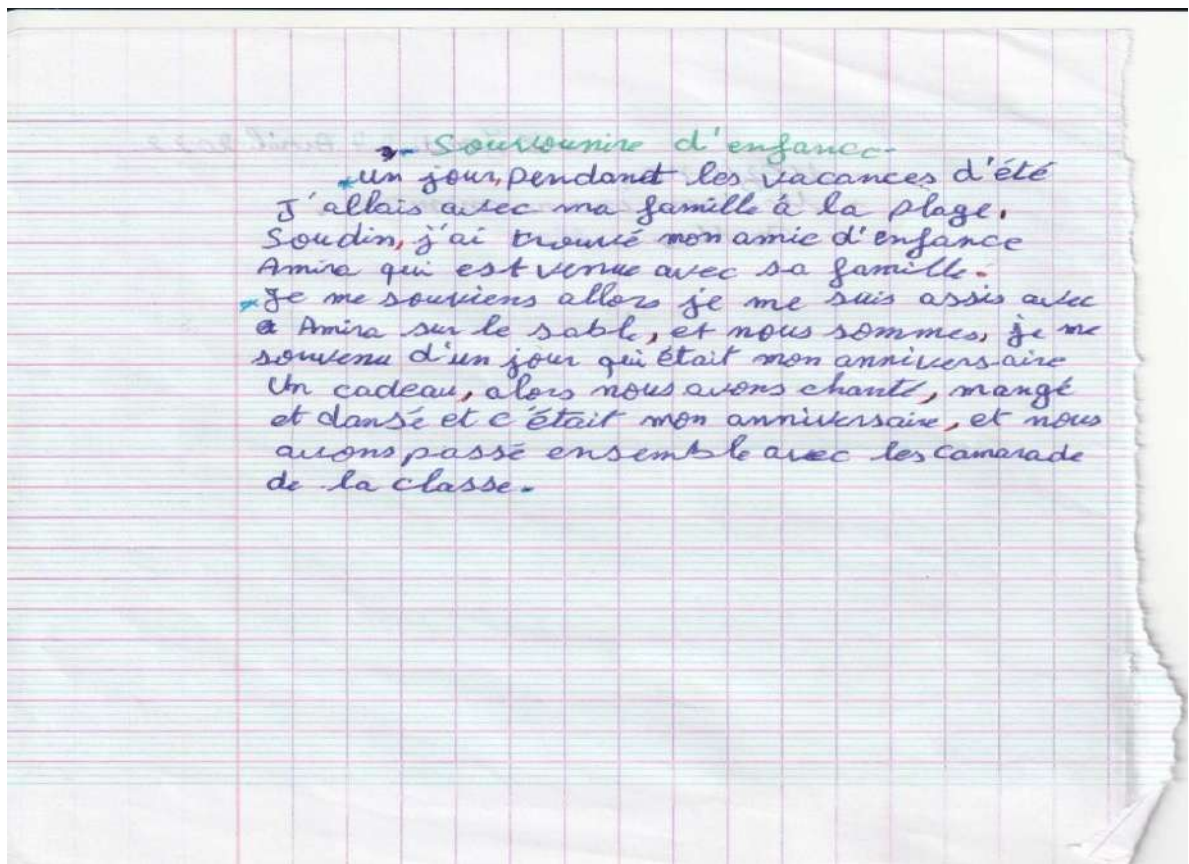 - Souvounire d'enfance-
un jour, pendant les vacances d'été
J'allais avec ma famille à la plage.
Soudin, j'ai trouvé mon amie d'enfance
Amira qui est venue avec sa famille.
Je me souviens allors je me suis assis avec
Amira sur le sable, et nous sommes, je me
souvenu d'un jour qui était mon anniversaire
Un cadeau, alors nous avons chanté, mangé
et dansé et c'était mon anniversaire, et nous
avons passé ensemble avec les camarade
de la classe.